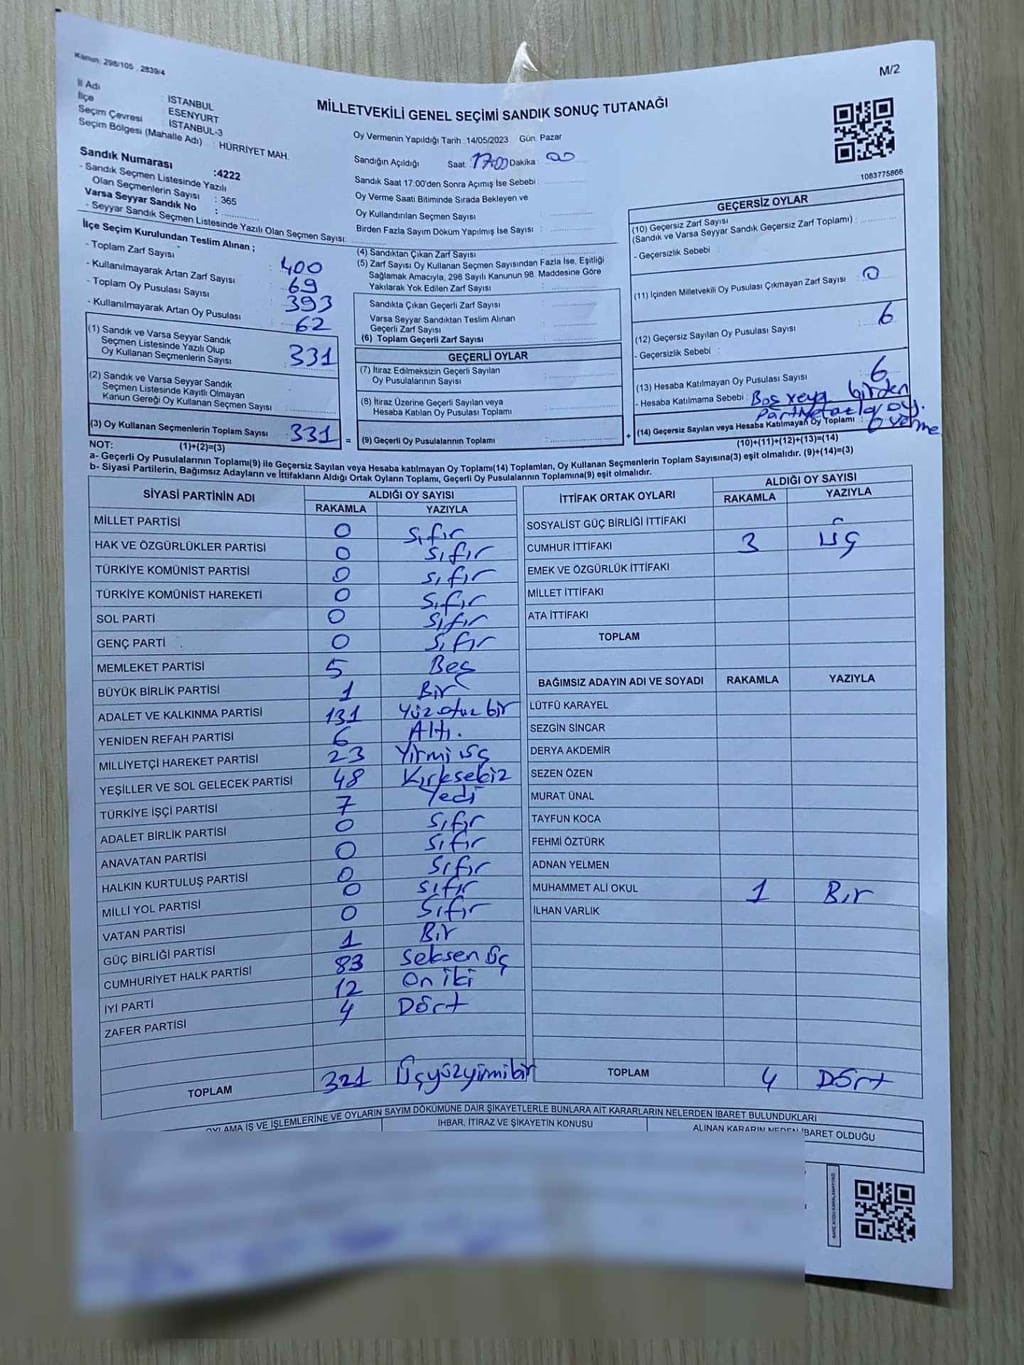 Kanun: 298/105 , 2839/4
M/2
İl Adı : İSTANBUL
İlçe : ESENYURT
Seçim Çevresi : İSTANBUL-3
Seçim Bölgesi (Mahalle Adı) : HÜRRİYET MAH.
MİLLETVEKİLİ GENEL SEÇİMİ SANDIK SONUÇ TUTANAĞI
Oy Vermenin Yapıldığı Tarih :14/05/2023 Gün: Pazar
Sandığın Açıldığı Saat: 17:00 Dakika 00
Sandık Saat 17:00'den Sonra Açımış İse Sebebi :
Oy Verme Saati Bitiminde Sırada Bekleyen ve
Oy Kullandırılan Seçmen Sayısı :
Birden Fazla Sayım Döküm Yapılmış İse Sayısı :
1083775866
Sandık Numarası :4222
- Sandık Seçmen Listesinde Yazılı
Olan Seçmenlerin Sayısı : 365
Varsa Seyyar Sandık No :
- Seyyar Sandık Seçmen Listesinde Yazılı Olan Seçmen Sayısı:
İlçe Seçim Kurulundan Teslim Alınan ;
- Toplam Zarf Sayısı : 400
- Kullanılmayarak Artan Zarf Sayısı : 69
- Toplam Oy Pusulası Sayısı : 393
- Kullanılmayarak Artan Oy Pusulası : 62
(1) Sandık ve Varsa Seyyar Sandık
Seçmen Listesinde Yazılı Olup
Oy Kullanan Seçmenlerin Sayısı : 331
(2) Sandık ve Varsa Seyyar Sandık
Seçmen Listesinde Kayıtlı Olmayan
Kanun Gereği Oy Kullanan Seçmen Sayısı :
(3) Oy Kullanan Seçmenlerin Toplam Sayısı : 331 =
(4) Sandıktan Çıkan Zarf Sayısı :
(5) Zarf Sayısı Oy Kullanan Seçmen Sayısından Fazla İse, Eşitliği
Sağlamak Amacıyla, 298 Sayılı Kanunun 98. Maddesine Göre
Yakılarak Yok Edilen Zarf Sayısı :
Sandıkta Çıkan Geçerli Zarf Sayısı :
Varsa Seyyar Sandıktan Teslim Alınan
Geçerli Zarf Sayısı :
(6) Toplam Geçerli Zarf Sayısı :
GEÇERLİ OYLAR
(7) İtiraz Edilmeksizin Geçerli Sayılan
Oy Pusulalarının Sayısı :
(8) İtiraz Üzerine Geçerli Sayılan veya
Hesaba Katılan Oy Pusulası Toplamı :
(9) Geçerli Oy Pusulalarının Toplamı : +
GEÇERSİZ OYLAR
(10) Geçersiz Zarf Sayısı
(Sandık ve Varsa Seyyar Sandık Geçersiz Zarf Toplamı) :
- Geçersizlik Sebebi :
(11) İçinden Milletvekili Oy Pusulası Çıkmayan Zarf Sayısı : 0
(12) Geçersiz Sayılan Oy Pusulası Sayısı : 6
- Geçersizlik Sebebi :
(13) Hesaba Katılmayan Oy Pusulası Sayısı : 6
- Hesaba Katılmama Sebebi : Boş veya birden
(14) Geçersiz Sayılan veya Hesaba Katılmayan Oy Toplamı :
(1)+(2)=(3)
(10)+(11)+(12)+(13)=(14)
NOT:
a- Geçerli Oy Pusulalarının Toplamı(9) ile Geçersiz Sayılan veya Hesaba katılmayan Oy Toplamı(14) Toplamları, Oy Kullanan Seçmenlerin Toplam Sayısına(3) eşit olmalıdır. (9)+(14)=(3)
b- Siyasi Partilerin, Bağımsız Adayların ve İttifakların Aldığı Ortak Oyların Toplamı, Geçerli Oy Pusulalarının Toplamına(9) eşit olmalıdır.
SİYASİ PARTİNİN ADI ALDIĞI OY SAYISI
RAKAMLA YAZIYLA
MİLLET PARTİSİ 0 Sıfır
HAK VE ÖZGÜRLÜKLER PARTİSİ 0 Sıfır
TÜRKİYE KOMÜNİST PARTİSİ 0 Sıfır
TÜRKİYE KOMÜNİST HAREKETİ 0 Sıfır
SOL PARTİ 0 Sıfır
GENÇ PARTİ 0 Sıfır
MEMLEKET PARTİSİ 5 Beş
BÜYÜK BİRLİK PARTİSİ 1 Bir
ADALET VE KALKINMA PARTİSİ 131 Yüz otuz bir
YENİDEN REFAH PARTİSİ 6 Altı.
MİLLİYETÇİ HAREKET PARTİSİ 23 Yirmi üç
YEŞİLLER VE SOL GELECEK PARTİSİ 48 Kırksekiz
TÜRKİYE İŞÇİ PARTİSİ 7 Yedi
ADALET BİRLİK PARTİSİ 0 Sıfır
ANAVATAN PARTİSİ 0 Sıfır
HALKIN KURTULUŞ PARTİSİ 0 Sıfır
MİLLİ YOL PARTİSİ 0 Sıfır
VATAN PARTİSİ 0 Sıfır
GÜÇ BİRLİĞİ PARTİSİ 1 Bir
CUMHURİYET HALK PARTİSİ 83 Seksen üç
İYİ PARTİ 12 On iki
ZAFER PARTİSİ 4 Dört
TOPLAM 321 Üçyüzyirmibir
İTTİFAK ORTAK OYLARI ALDIĞI OY SAYISI
RAKAMLA YAZIYLA
SOSYALİST GÜÇ BİRLİĞİ İTTİFAKI
CUMHUR İTTİFAKI 3 üç
EMEK VE ÖZGÜRLÜK İTTİFAKI
MİLLET İTTİFAKI
ATA İTTİFAKI
TOPLAM
BAĞIMSIZ ADAYIN ADI VE SOYADI RAKAMLA YAZIYLA
LÜTFÜ KARAYEL
SEZGİN SİNCAR
DERYA AKDEMİR
SEZEN ÖZEN
MURAT ÜNAL
TAYFUN KOCA
FEHMİ ÖZTÜRK
ADNAN YELMEN
MUHAMMET ALİ OKUL 1 Bir
İLHAN VARLIK
TOPLAM 4 Dört
OYLAMA İŞ VE İŞLEMLERİNE VE OYLARIN SAYIM DÖKÜMÜNE DAİR ŞİKAYETLERLE BUNLARA AİT KARARLARIN NELERDEN İBARET BULUNDUKLARI
İHBAR, İTİRAZ VE ŞİKAYETİN KONUSU
ALINAN KARARIN NEDEN İBARET OLDUĞU